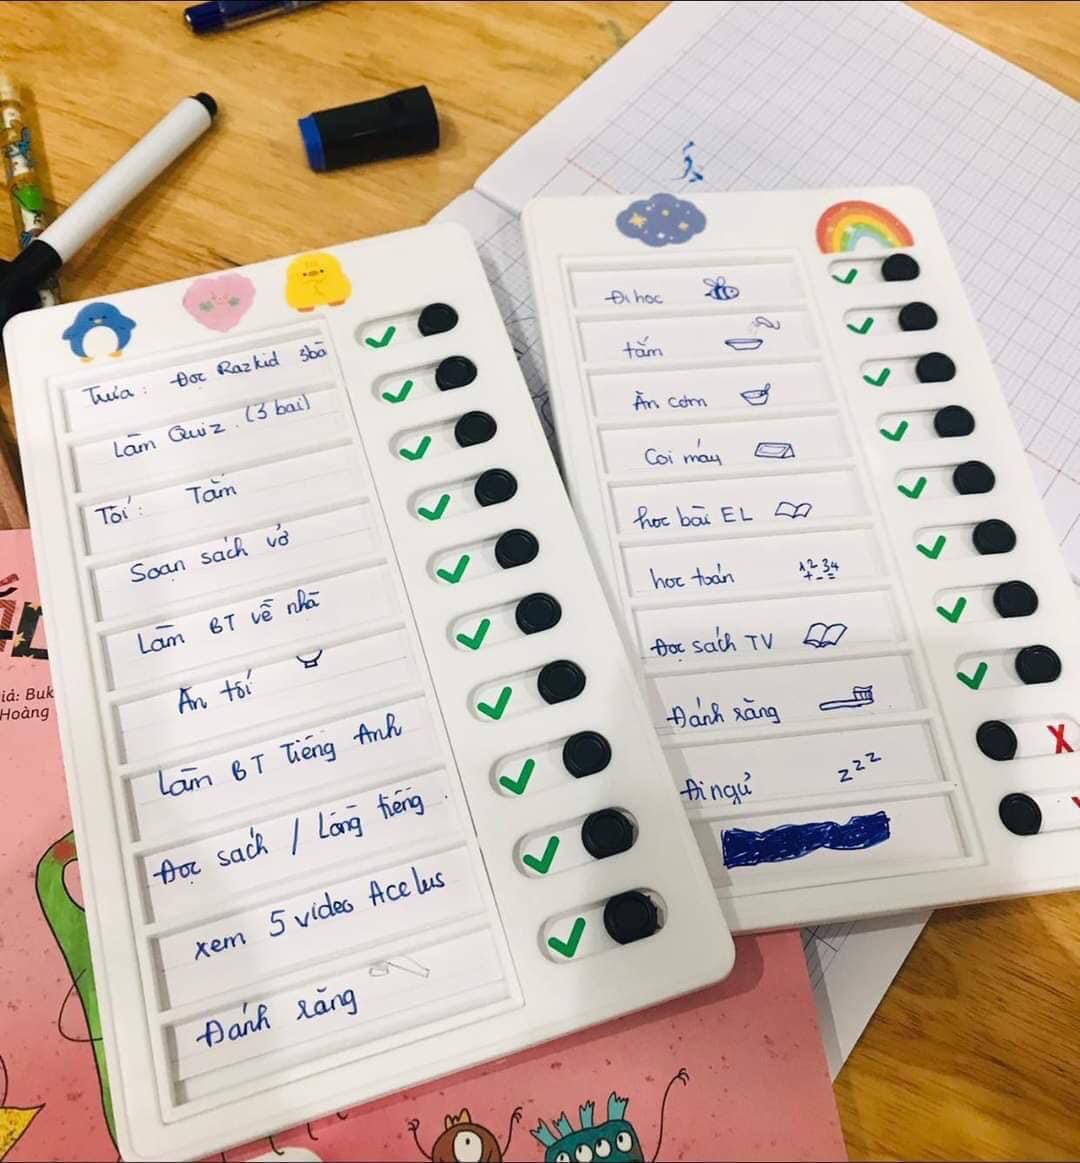 Trưa: Đọc Razkid 3bà
Làm Quiz (3 bài)
Tối: Tắm
Soạn sách vở
Làm BT về nhà
Ăn tối
Làm BT Tiếng Anh
Đọc sách / Lồng tiếng
xem 5 video Acelus
Đánh răng
Đi học
tắm
Ăn cơm
Coi máy
học bài EL
học toán
1 2 3 4
+ - =
Đọc sách TV
Đánh răng
Đi ngủ
z z z
X
iả: Buk
Hoàng